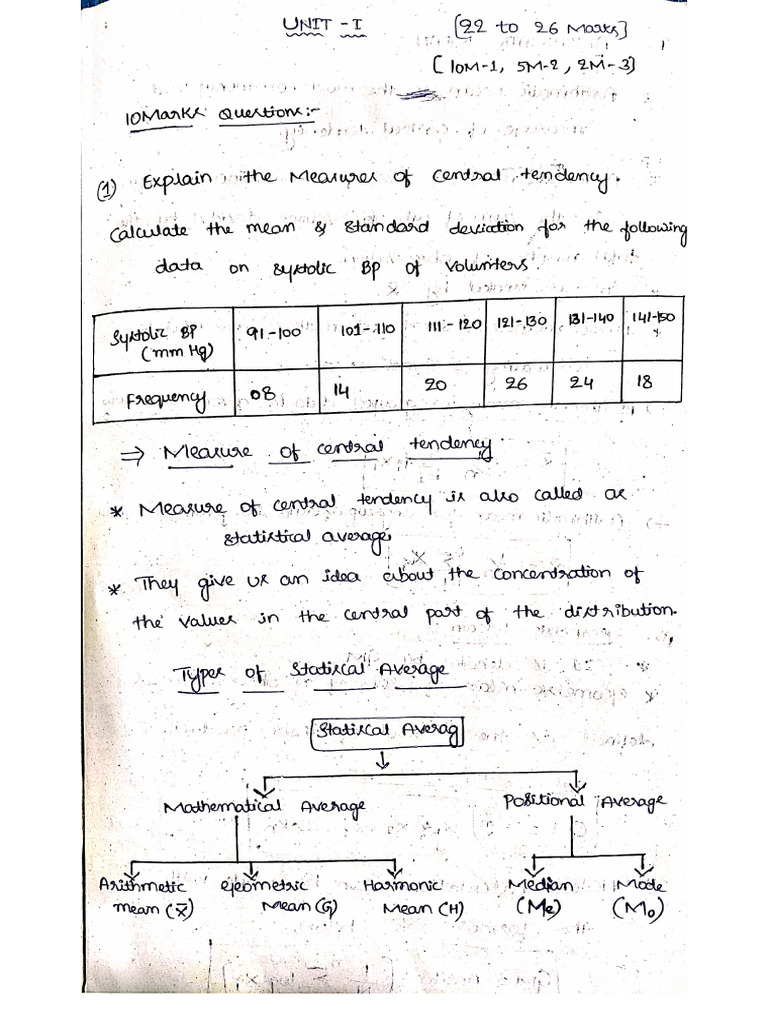 UNIT - I [22 to 26 Marks]
[10M-1, 5M-2, 2M-3]
10Marks Questions:-
(1) Explain the Measures of central tendency.
Calculate the mean & standard deviation for the following
data on systolic BP of volunters.
Systolic BP (mm Hg) 91-100 101-110 111-120 121-130 131-140 141-150
Frequency 08 14 20 26 24 18
⇒ Measure of central tendency
* Measure of central tendency is also called as
statistical average
* They give us an idea about the concentration of
the values in the central part of the distribution.
Types of Statiscal Average
Statiscal Averag
Mathematical Average Positional Average
Arithmetic mean (x̄) Geometric Mean (G) Harmonic Mean (H) Median (Me) Mode (Mo)